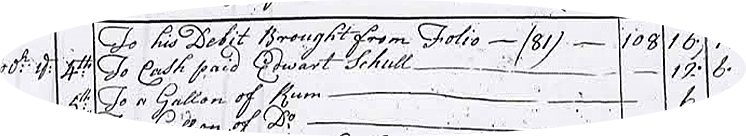 To his Debit Brought from Folio — (81) — 108 16
4th To Cash paid Edwart Schull — 12 6
5th To a Gallon of Rum — 6
of Do